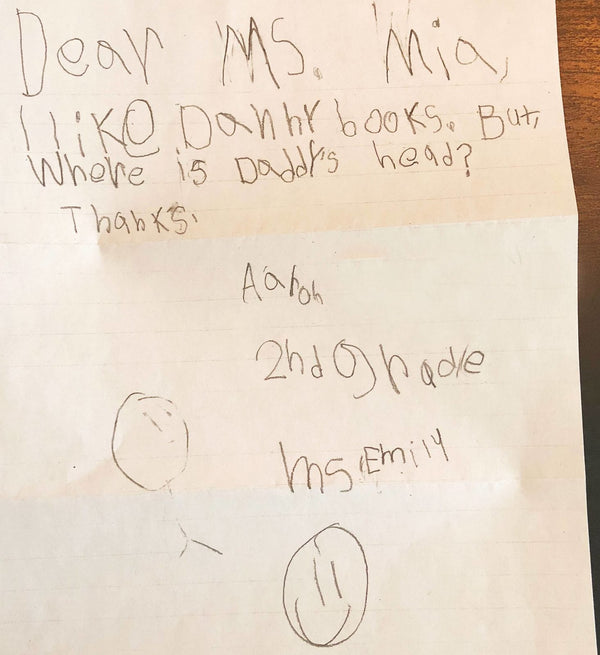 Dear Ms. Mia,
I like Danny books. But,
Where is Daddy's head?
Thanks.
Aaron
2nd Grade
Ms. Emily